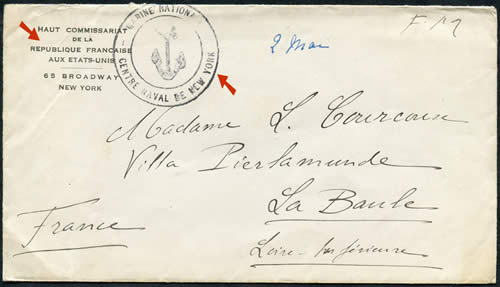 HAUT COMMISSARIAT
DE LA
REPUBLIQUE FRANCAISE
AUX ETATS-UNIS
65 BROADWAY
NEW YORK
MARINE NATIONALE
CENTRE NAVAL DE NEW YORK
F. M
2 Mai
Madame L. Courcoux
Villa Pierlamunde
La Baule
Loire-Inférieure
France